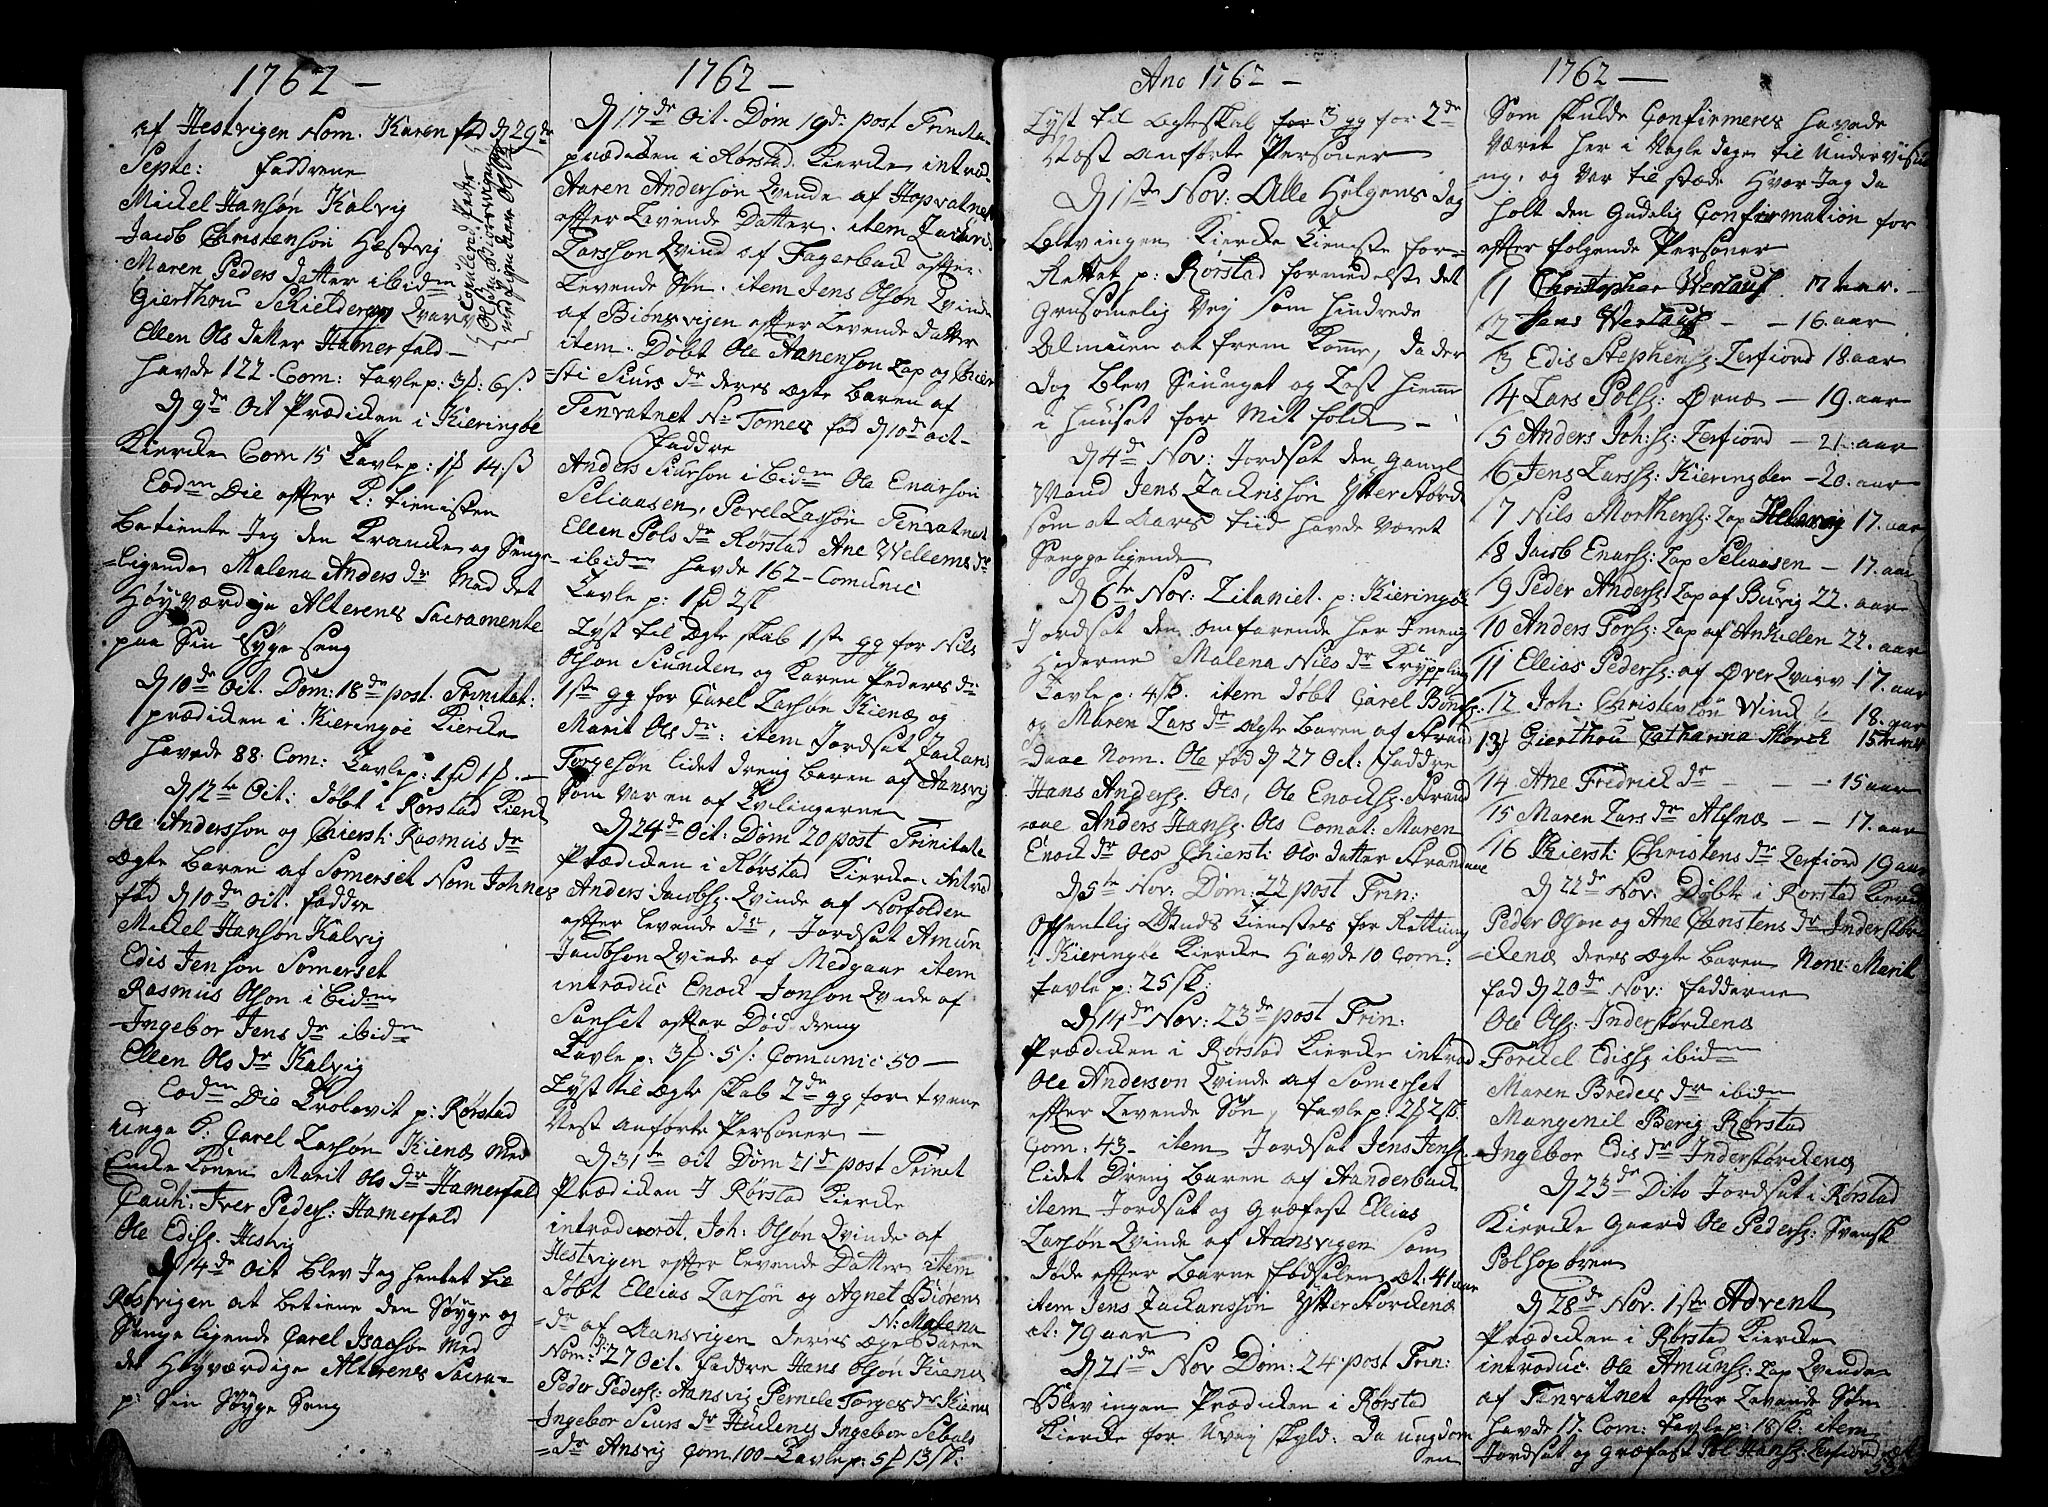 1762 —
af Hestvigen Nom. Karen fød d 29de
Septe: faddrene
Mickel Hansøn Kalvig
Jacob Christensøn Hestvig
Maren Peders datter ibidem
Gierthru Schielderup Qvarv
Ellen Ols datter Hamerfald —
havde 122 Com: tavle p: 3ß: 6ß
d 9de Oct Prædicken i Kieringøe
Kiercke Com 15 tavle p: 1ß 14:ß
Eodem Die efter K: tienisten
betiente Jeg den Krancke og Senge-
ligende Malena Anders dr Med det
Høyværdige Alterens Sacramente
paa Sin Syge seng
d 10de Oct. Dom: 18de post Trinitat:
prædicken i Kieringøe Kiercke
havde 88 Com: tavle p:
d 12te Oct: døbt i Rørstad Kierck
Ole Andersson og Chiersti Rasmus dr
Ægte Baren af Somerset Nom Johnes
fød d 10de Oct. faddre
Mickel Hansøn Kalvig
Edis Jensøn Somerset
Rasmus Olsøn ibidem
Ingebor Jens dr ibidem
Ellen Ols dr Kalvig
Eodem Die trolovit p: Rørstad
unge K: Carel Larsøn Kienæs Med
Encke Konen Marit Ols dr Hamerfald
Cauti: Iver Peders: Hamerfald
Ole Ediss. Hestvig
d 14de Oct blev Jeg hentet til
Røsvigen at betiene den Syge og
Senge ligende Carel Isacsøn Med
det Høyværdige Alterens Sacra-
p: Sin Syge Seng
1762 —
d 17de Oct. Dom 19de post Trinita
prædicken i Rørstad Kiercke introd-
Aaren Andersøn Qvinde af Hopvatnet
efter Levende Datter. item Zackaris
Larsson Qvind af Fagerback efter
Levende Søn. item Jens Olsøn Qvinde
af Biørsvigen efter Levende datter
item: Døbt Ole Hanenson Lap og Chier
sti Siurs dr deres Ægte Baren af
Tenvatnet N: Tomes fød d 10de Oct-
faddre
Anders Siurson ibidem Ole Enarsøn
Seliaasen, Povel Larsøn Tenvatnet
Ellen Pols dr Rørstad Ane Vellems dr
ibidem havde 162 Comunic
Tavle p:
Lyst til Ægte skab 1ste gg for Nils
Olsøn Siuncken og Karen Peders dr
1ste gg for Carel Larsøn Kienæs og
Marit Ols dr: item Jordsat Zackaris
Torgesøn lidet dreng Baren af Aansvig
Som var en af tvelingerne
d 24de Oct: Dom 20 post Trinitate
Prædicken i Rørstad Kiercke. Introd
Anders Jacobs. Qvinde af Norfolden
efter levende dr, Jordsat Amun
Jacobson Qvinde af Medgaar item
introduc Enock Jonson Qvinde af
Sunset efter Død dreng
Tavle p: 3ß. 5ß: Comunic 50 —
Lyst til Ægte skab 2de gg for tvene
Nest anførte Personer —
d 31te Oct Dom 21de post Trinit
Prædicken J Rørstad Kiercke
introducerst. Joh: Olsøn Qvinde af
Hestvigen efter levende Datter item
døbt Ellias Larsøn og Agnet Biørens
dr af Aansvigen deres Ægte Baren
N: Malena
Nom: 27 Oct. faddre Hans Olsøn Kienæs
Peder Peders: Aansvig Pernele Torges dr Kienæs
Ingebor Siurs dr Huckenes Ingebor Sebals
dr Ansvig Com 100 — Tavle p: 5ß 13ß:
Ano 1762 —
Lyst til Ægteskab for 3 gg for 2de
Næst anførte Personer
d 1ste Nov: Alle Helgens dag
blev ingen Kiercke tieniste for-
rettet p: Rørstad formedelst det
grusomelig Vejr som hindrede
Almuen at frem Komme, da der
dog blev Siunget og Læst hieme
i huuset for Mit folck —
d 4de Nov: Jordsat den gamel
Mand Jens Zackrissøn Ytter Stord
som at Aars tiid havde Været
Sengeligende
d 6te Nov: Litaniet p: Kieringøe
Jordsat den omfarende her J menig
hederne Malena Nils dr Krypling
Tavle p: 4ß. item døbt Carel Bends
og Maren Lars dr Ægte Baren af Strand
daae Nom. Ole fød d 27 Oct: faddre
Hans Anders. Ols, Ole Enocks. Strand
aae Anders Hans. Ols Comat: Maren
Enock dr Ols Chiersti Ols datter Strandaae
d 5te Nov: Dom: 22 post Trin:
Offentlig Guds tienestes for Rettning
i Kieringøe Kiercke havde 10 Com:
tavle p: 25ß:
d 14de Nov: 23de post Trin:
Prædicken i Rørstad Kiercke introd
Ole Anderson Qvinde af Somerset
efter Levende Søn, tavle p: 2ß 2ß.
Com: 43 — item Jordsat Jens Jens:
lidet Dreng Baren af Aanderback
item Jordsat og Græfest Ellias
Larsøn Qvinde af Aansvigen som
døde efter Barne fødselen æt: 41 aar
item Jens Zackarissøn Ytter Storckenæs
æt: 79 aar
d 21de Nov Dom: 24 post Trin:
Blev ingen Prædicken i Rørstad
Kiercke for Uvejr skyld: Da ungdom
en
1762 —
Som skulde Confirmeres havde
Været her i Nogle dage til Undervis
ng, og var til stæde hvor Jeg da
holt den Gudelig Confirmation for
efter følgende Personer
1 Christopher Werlauf 17 aar. —
2 Jens Werlauf — — 16. aar
3 Edis Stephens. Lerfiord 18 aar
4 Lars Pols: Ørnæs — 19. aar
5 Anders Joh:s: Lerfiord — 21. aar
6 Jens Larss: Kieringøen — 20. aar
7 Nils Morthens: Lap Helavig 17. aar
8 Jacob Enars: Lap Seliaasen — 17. aar
9 Peder Anders: Lap af Buvig 22. aar
10 Anders Tors: Lap af Ankellen 22. aar
11 Ellias Peders: af Øver Qvarv 17. aar
12 Joh: Christensøn Winck 18. aar
13 Gierthru Catharina Mørck 15 aar
14 Ane Fredrick dr — — — 15 aar
15 Maren Lars dr Alfnæs — — 17. aar
16 Kiersti Christens dr Lerfiord 19 aar
d 22de Nov. Døbt i Rørstad Kierck
Peder Olsøn og Ane Carstens dr Inderstor
ckenæs deres Ægte Baren Nom: Marit
fød d 20de Nov: fadderne
Ole Ols: Inderstorckenæs
Torckel Ediss ibidem
Maren Bredes dr ibidem
Mangenil Berig Rørstad
Ingebor Edis dr Inderstorckenæs
d 23de Dito Jordsat i Rørstad
Kiercke Gaard Ole Peders: Svensk
Polsopøren
d 28de Nov. 1ste Advent
Prædicken i Rørstad Kiercke
introduc. Ole Amuns: Lap Qvinde
af Tenvatnet efter Levende Søn
havde 17. Com: tavle p: 18ß. item
Jordsat og Græfæst Pol Hans: Lerfiord æt
53